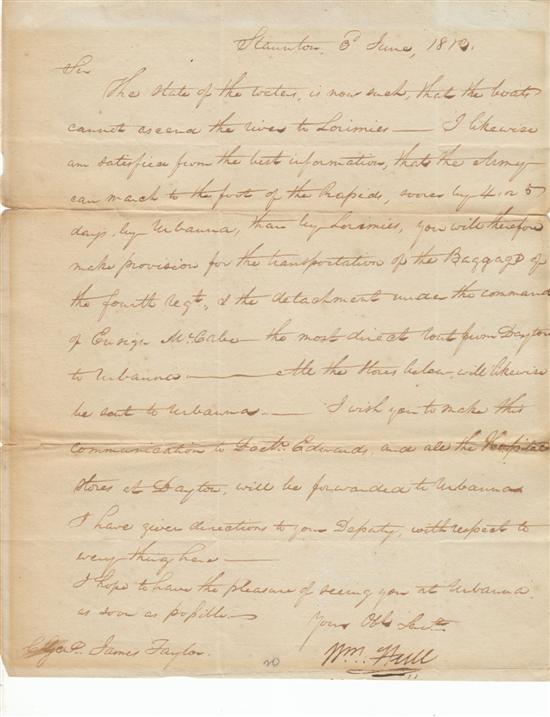 Staunton 6th June, 1812.
Sir
The state of the waters, is now such, that the boats
cannot ascend the river to Lorimies — I likewise
am satisfied from the best information, that the Army
can march to the foot of the Rapids, sooner by 4 or 5
days, by Urbanna, than by Lorimies, you will therefore
make provision for the transportation of the Baggage of
the fourth regt., & the detachment under the command
of Ensign McCabe — the most direct rout from Dayton
to Urbanna — All the stores below will likewise
be sent to Urbanna — I wish you to make this
communication to Doctr. Edwards, and all the Hospital
stores at Dayton, will be forwarded to Urbanna
I have given directions to your Deputy, with respect to
every thing here —
I hope to have the pleasure of seeing you at Urbanna
as soon as possible —
Your Obt. Servt.
Wm. Hull
James Taylor.
20